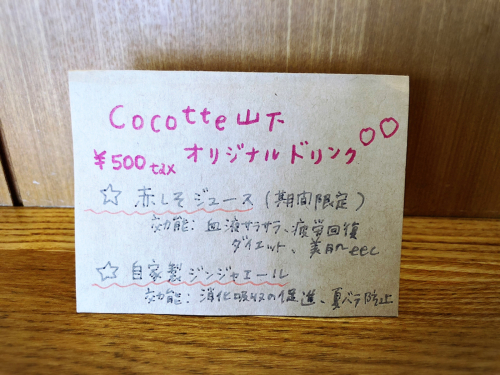 Cocotte山下
¥500tax オリジナルドリンク♡♡
☆ 赤しそジュース (期間限定)
効能: 血液サラサラ、疲労回復
ダイエット、美肌へeec
☆ 自家製ジンジャエール
効能: 消化吸収の促進、夏バテ防止